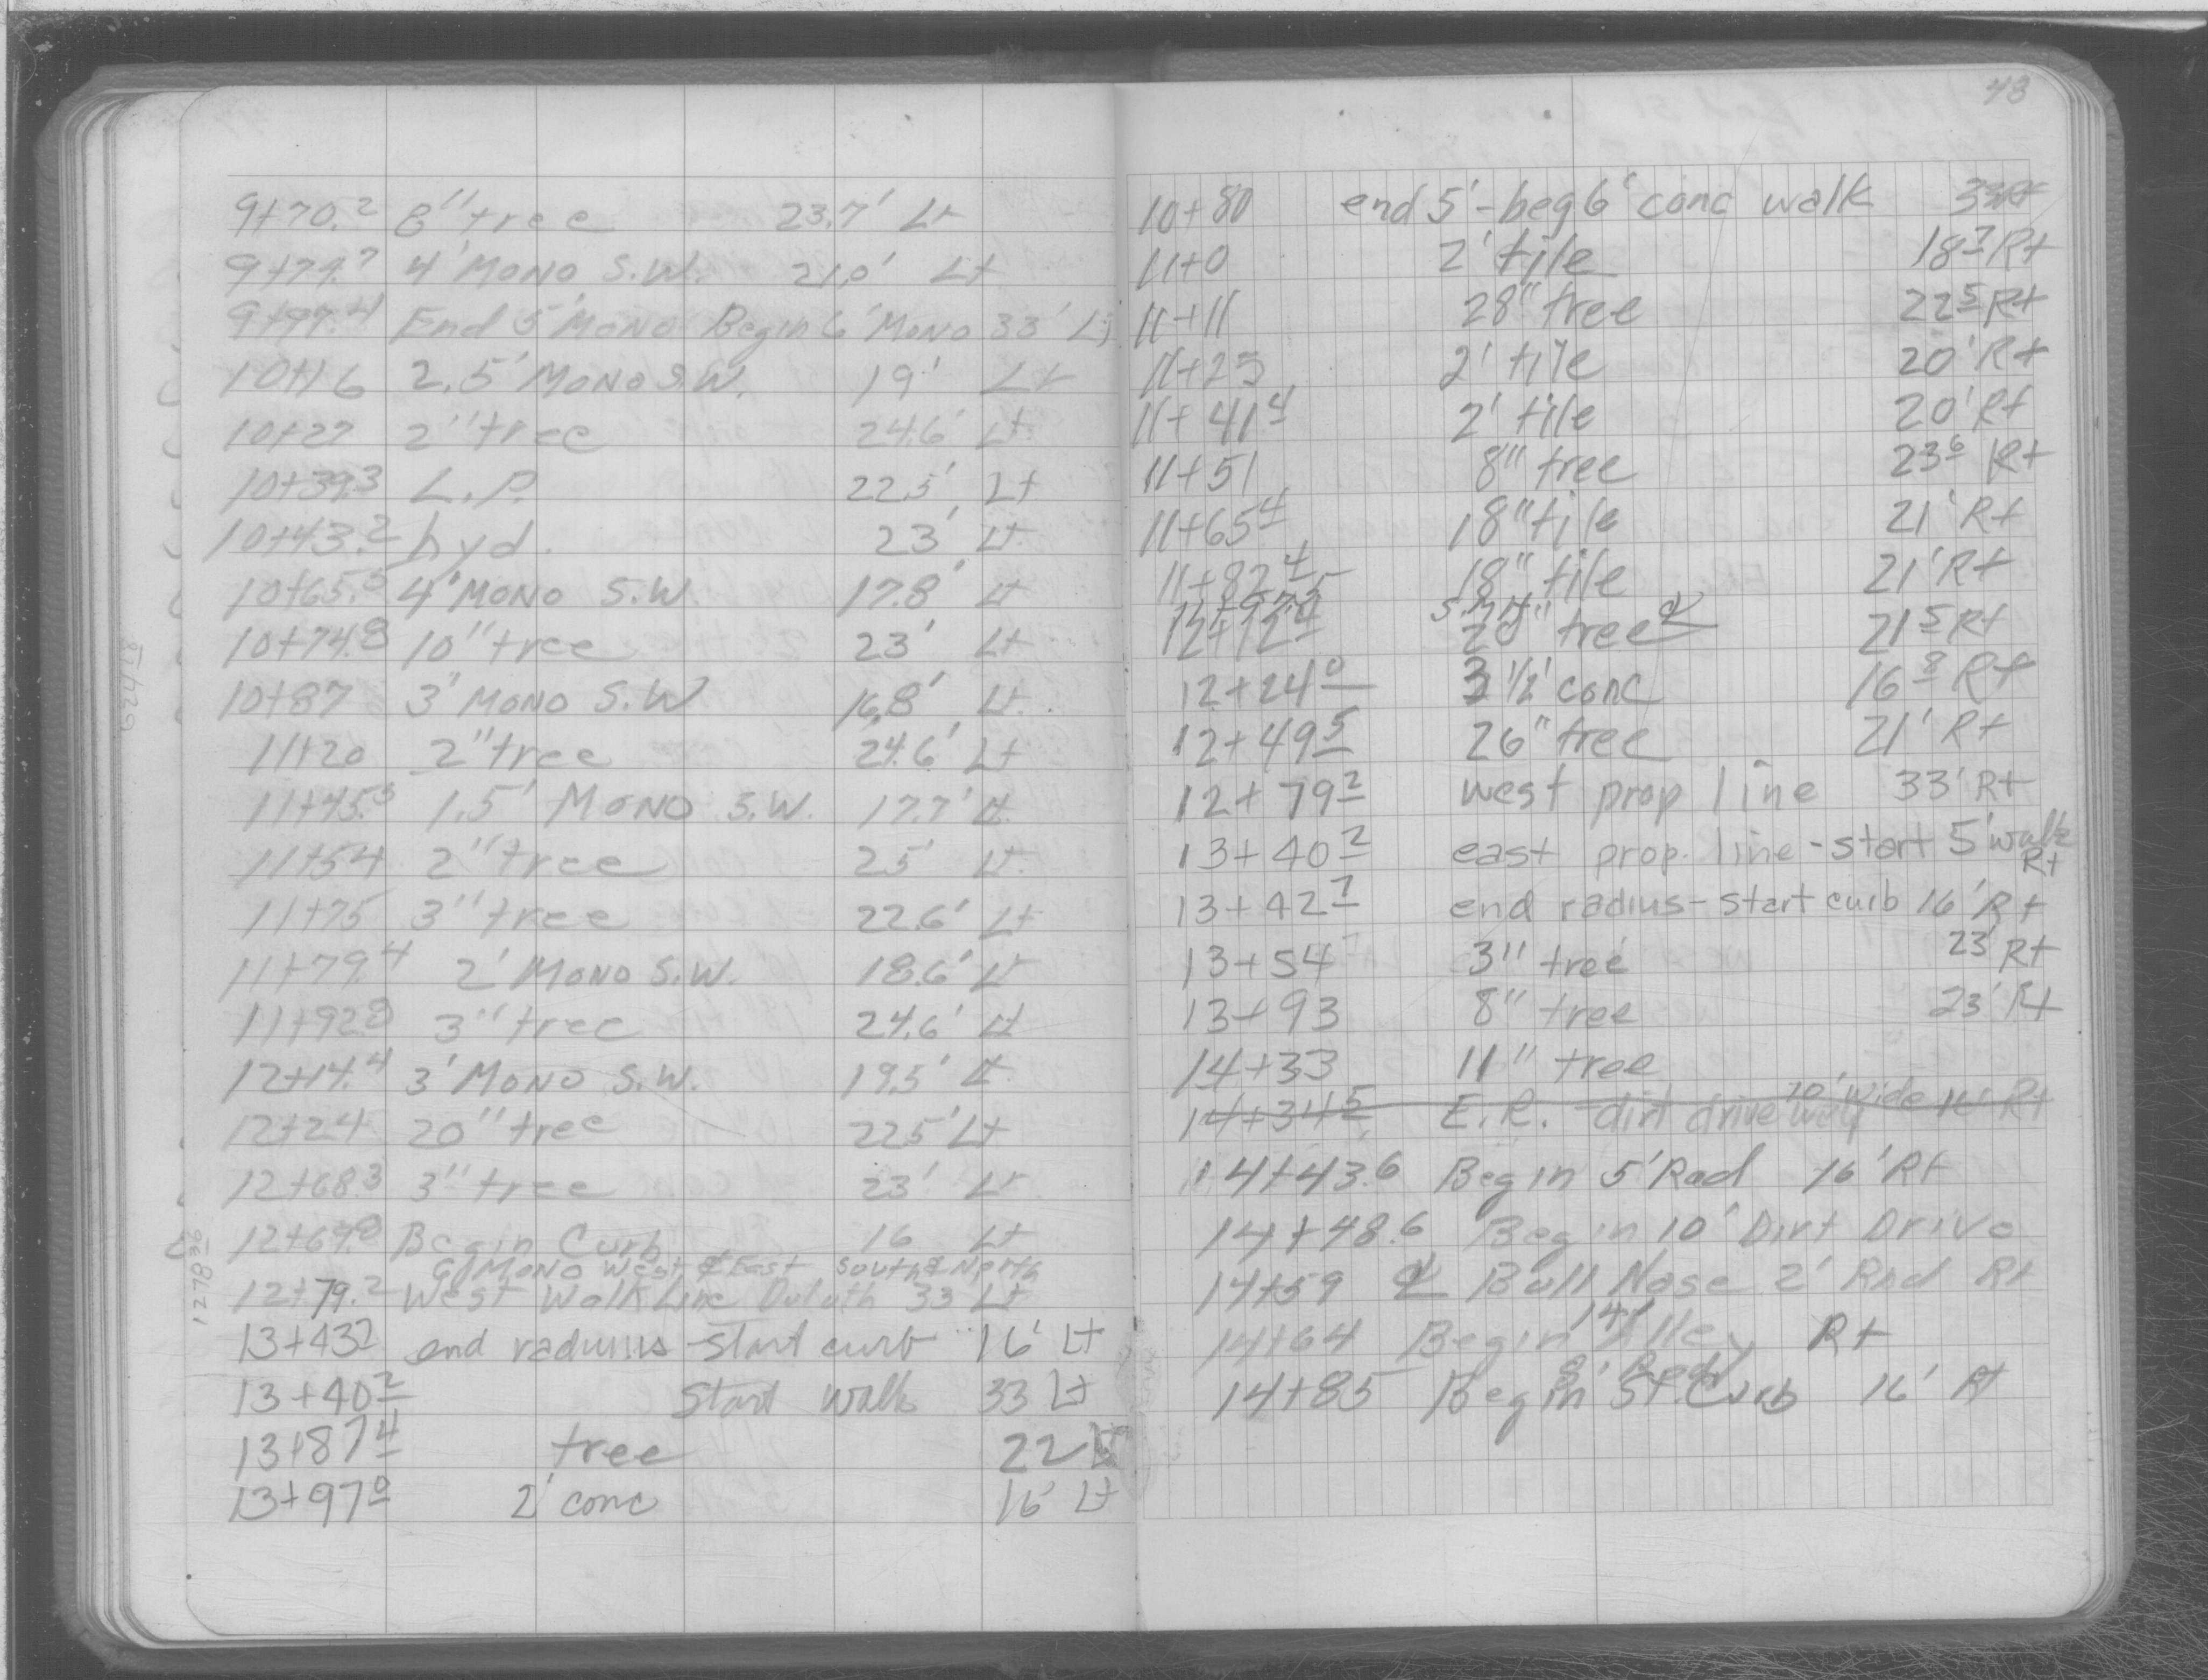 9+70.2 8" tree 23.7' Lt
9+79.7 4' MONO S.W. 21.0' Lt
9+97.4 End 5' MONO Begin 6' MONO 33' Lt
10+16 2.5' MONO S.W. 19' Lt
10+27 2" tree 24.6' Lt
10+39.3 L.P. 22.5' Lt
10+43.2 hyd. 23' Lt
10+65.5 4' MONO S.W. 17.8' Lt
10+74.8 10" tree 23' Lt
10+87 3' MONO S.W 16.8' Lt.
11+20 2" tree 24.6' Lt
11+45.5 1.5' MONO S.W. 17.7' Lt.
11+54 2" tree 25' Lt.
11+75 3" tree 22.6' Lt
11+79.4 2' MONO S.W. 18.6' Lt
11+92.8 3" tree 24.6' Lt
12+14.4 3' MONO S.W. 19.5' Lt
12+24 20" tree 22.5' Lt
12+68.3 3" tree 23' Lt
12+69.8 Begin Curb 16 Lt
6' MONO West & East South & North
12+79.2 West Walk Line Duluth 33' Lt
13+437 end radiuus - start curb 16' Lt
13+402 Start walk 33 Lt
13+874 tree 22 Lt
13+970 2' conc 16' Lt
43
10+80 end 5' - beg 6' conc walk
11+0 2' tile 187 Rt
11+11 28" tree 225 Rt
11+25 2' tile 20' Rt
11+414 2' tile 20' Rt
11+51 8" tree 236 Rt
11+654 18" tile 21' Rt
11+824 18" tile 21' Rt
12+124 20" tree 215 Rt
12+240 3 1/2' conc 168 Rt
12+495 26" tree 21' Rt
12+792 west prop line 33' Rt
13+402 east prop. line - start 5' walk Rt
13+427 end radius - start curb 16' Rt
13+54 3" tree 23' Rt
13+93 8" tree 23' Rt
14+33 11" tree
14+345 E.R. dirt driveway 10' wide 16' Rt
14+43.6 Begin 5' Rad 16' Rt
14+48.6 Begin 10' Dirt Drive
14+59 ℄ Bull Nose 2' Rad Rt
14+64 Begin 14' Alley Rt
14+85 Begin St. Curb 16' Rt